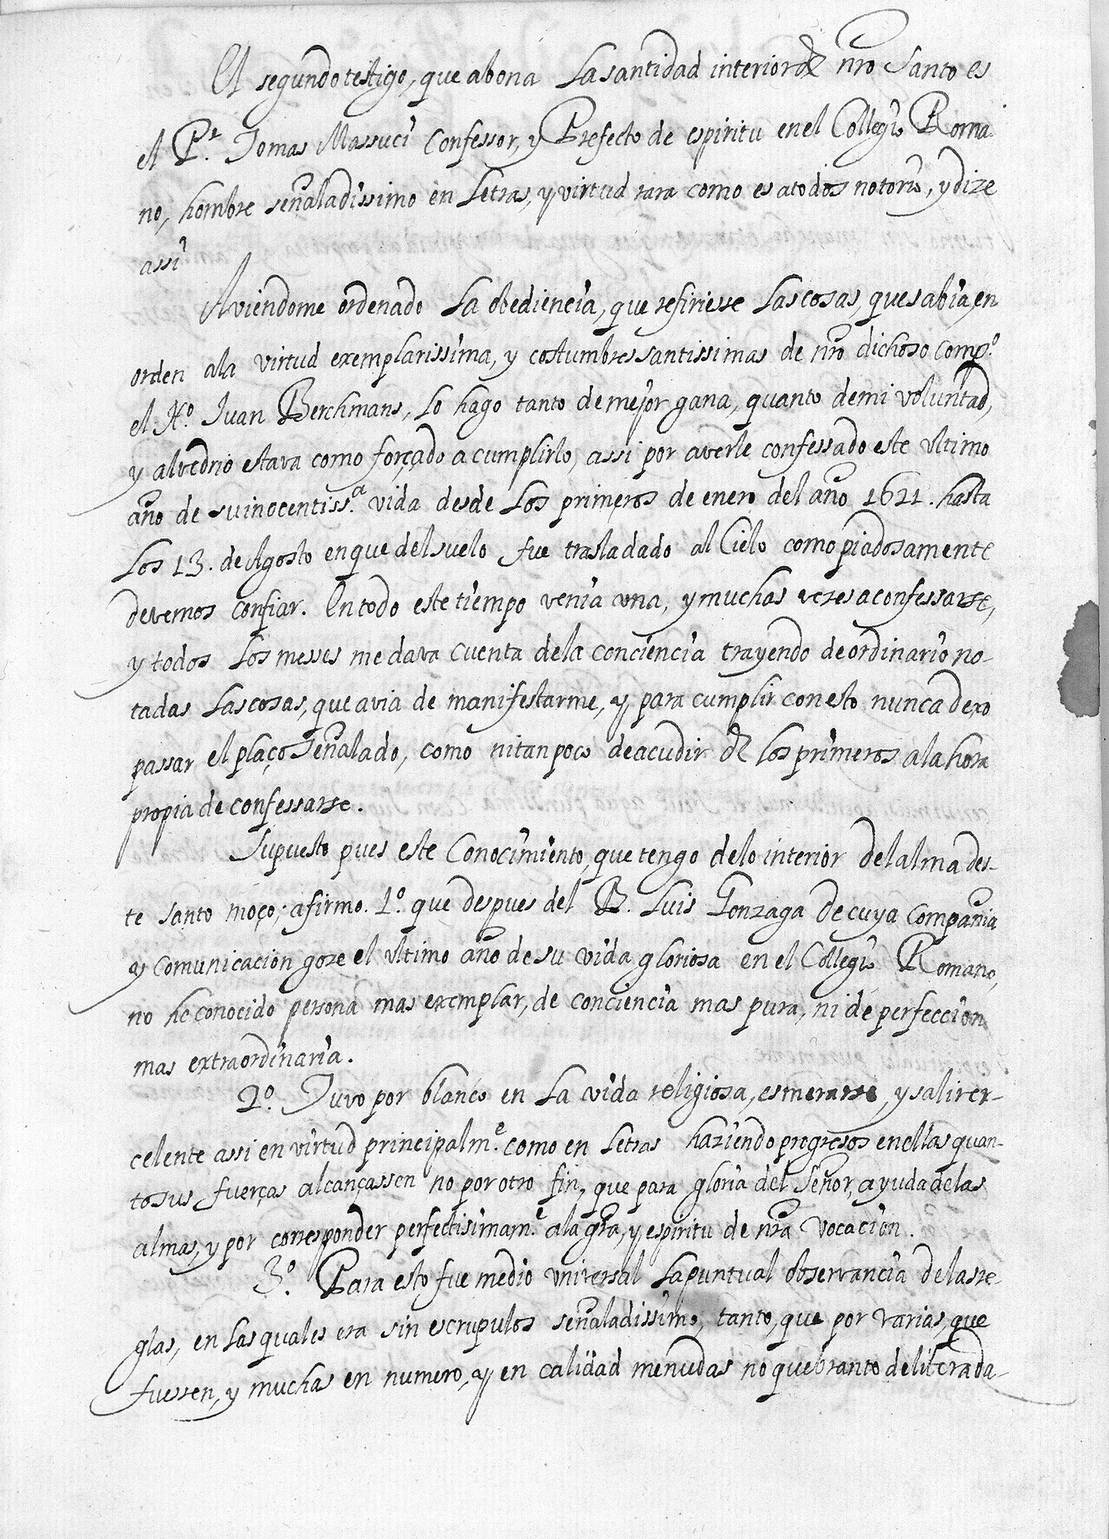 El segundo testigo, que abona la santidad interior de nro Santo es
el P.e Tomas Massuci Confessor, y Prefecto de espiritu en el Collegio Roma
no, hombre señaladissimo en letras, y virtud rara como es a todos notorio, y dize
assi
Aviendome ordenado la obediencia, que refiriesse las cosas, que sabia en
orden a la virtud exemplarissima, y costumbres santissimas de nro dichoso Comp.o
el H.o Iuan Berchmans, lo hago tanto de mejor gana, quanto de mi voluntad,
y alvedrio estava como forçado a cumplirlo, assi por averle confessado este ultimo
año de su inocentiss.a vida desde los primeros de enero del año 1621. hasta
los 13. de Agosto en que del suelo fue trasladado al Cielo como piadosamente
devemos confiar. En todo este tiempo venia una, y muchas vezes a confessarse,
y todos los messes me dava cuenta de la conciencia trayendo de ordinario no-
tadas las cosas, que avia de manifestarme, y para cumplir con esto nunca dexo
passar el plaço señalado, como ni tanpoco de acudir de los primeros a la hora
propia de confessarse.
Supuesto pues este Conocimiento, que tengo de lo interior del alma des-
te santo moço, afirmo. 1.o que despues del B. Luis Gonzaga de cuya Compañia
y comunicacion goze el ultimo año de su vida gloriosa en el Collegio Romano,
no he conocido persona mas exemplar, de conciencia mas pura, ni de perfeccion
mas extraordinaria.
2.o Tuvo por blanco en la vida religiosa, esmerarse, y salir ex-
celente assi en virtud principalm.e como en letras haziendo progresos en ellas quan-
to sus fuerças alcançassen no por otro fin, que para gloria del Señor, ayuda de las
almas, y por corresponder perfectisimam.e a la gra, y espiritu de nra vocacion.
3.o Para esto fue medio universal la puntual observancia de las re-
glas, en las quales era sin escrupulos señaladissimo, tanto, que por varias, que
fuessen, y muchas en numero, y en calidad menudas no quebranto deliberada-